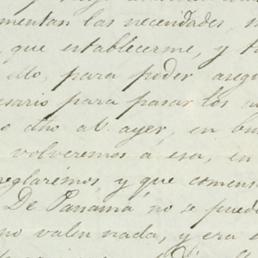 mentan las necesidades,
que establecerme, y t
ello, para poder asegu
esario para pasar los
dho al ayer, en bu
volveremos a esa, in
reglarémos, y que comens
De Panamá no se puede
no valen nada, y era